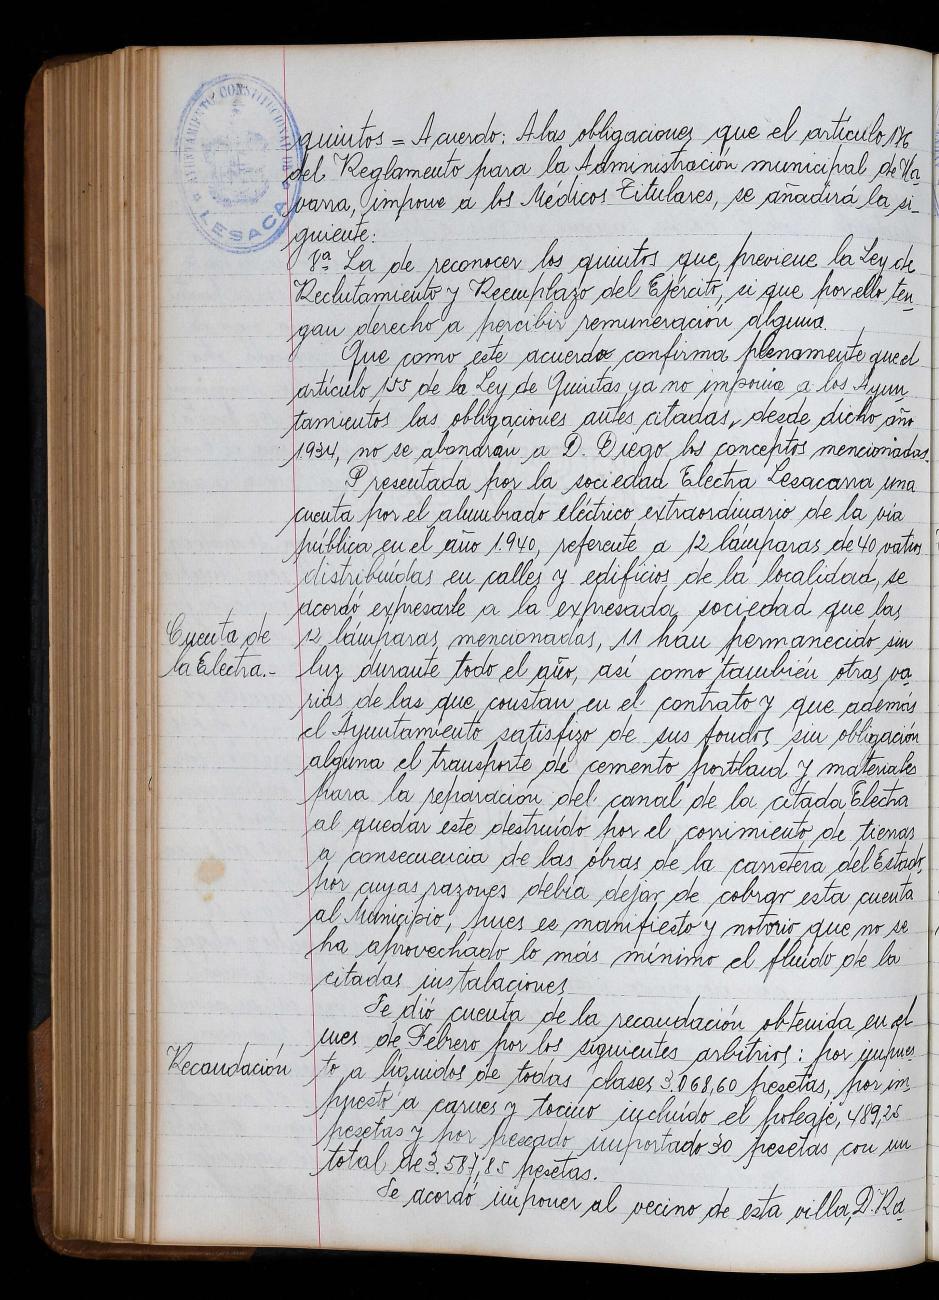 AYUNTAMIENTO CONSTITUCIONAL DE
LESACA
quintos = Acuerdo: A las obligaciones que el artículo 176
del Reglamento para la Administración municipal de Na-
varra, impone a los Médicos Titulares, se añadirá la si-
guiente:
8ª La de reconocer los quintos que previene la Ley de
Reclutamiento y Reemplazo del Ejército, si que por ello ten-
gan derecho a percibir remuneración alguna.
Que como este acuerdo confirma plenamente que el
artículo 155 de la Ley de Quintas ya no imponia a los Ayun-
tamientos las obligaciones antes citadas, desde dicho año
1934, no se abonarán a D. Diego los conceptos mencionadas.
Presentada por la sociedad Electra Lesacarra una
cuenta por el alumbrado eléctrico extraordinario de la via
pública en el año 1.940, referente a 12 lámparas de 40 vatios
distribuídas en calles y edificios de la localidad, se
acordó expresarle a la expresada sociedad que las
Cuenta de
la Electra.-
12 lámparas mencionadas, 11 han permanecido sin
luz durante todo el año, así como también otras va-
rias de las que constan en el contrato y que además
el Ayuntamiento satisfizo de sus fondos sin obligación
alguna el transporte de cemento portland y materiales
para la reparación del canal de la citada Electra
al quedar este destruído por el corrimiento de tierras
a consecuencia de las óbras de la carretera del Estado,
por cuyas razones debía dejar de cobrar esta cuenta
al Municipio, pues es manifiesto y notorio que no se
ha aprovechado lo más mínimo el fluído de la
citadas instalaciones
Se dió cuenta de la recaudación obtenida en el
mes de Febrero por los siguientes arbitrios: por impues
Recaudación
to a líquidos de todas clases 3.068,60 pesetas, por im-
puesto a carnes y tocino incluído el poleaje, 489,25
pesetas y por pescado importado 30 pesetas con un
total de 3.587,85 pesetas.
Se acordó imponer al vecino de esta villa, D. Ra-